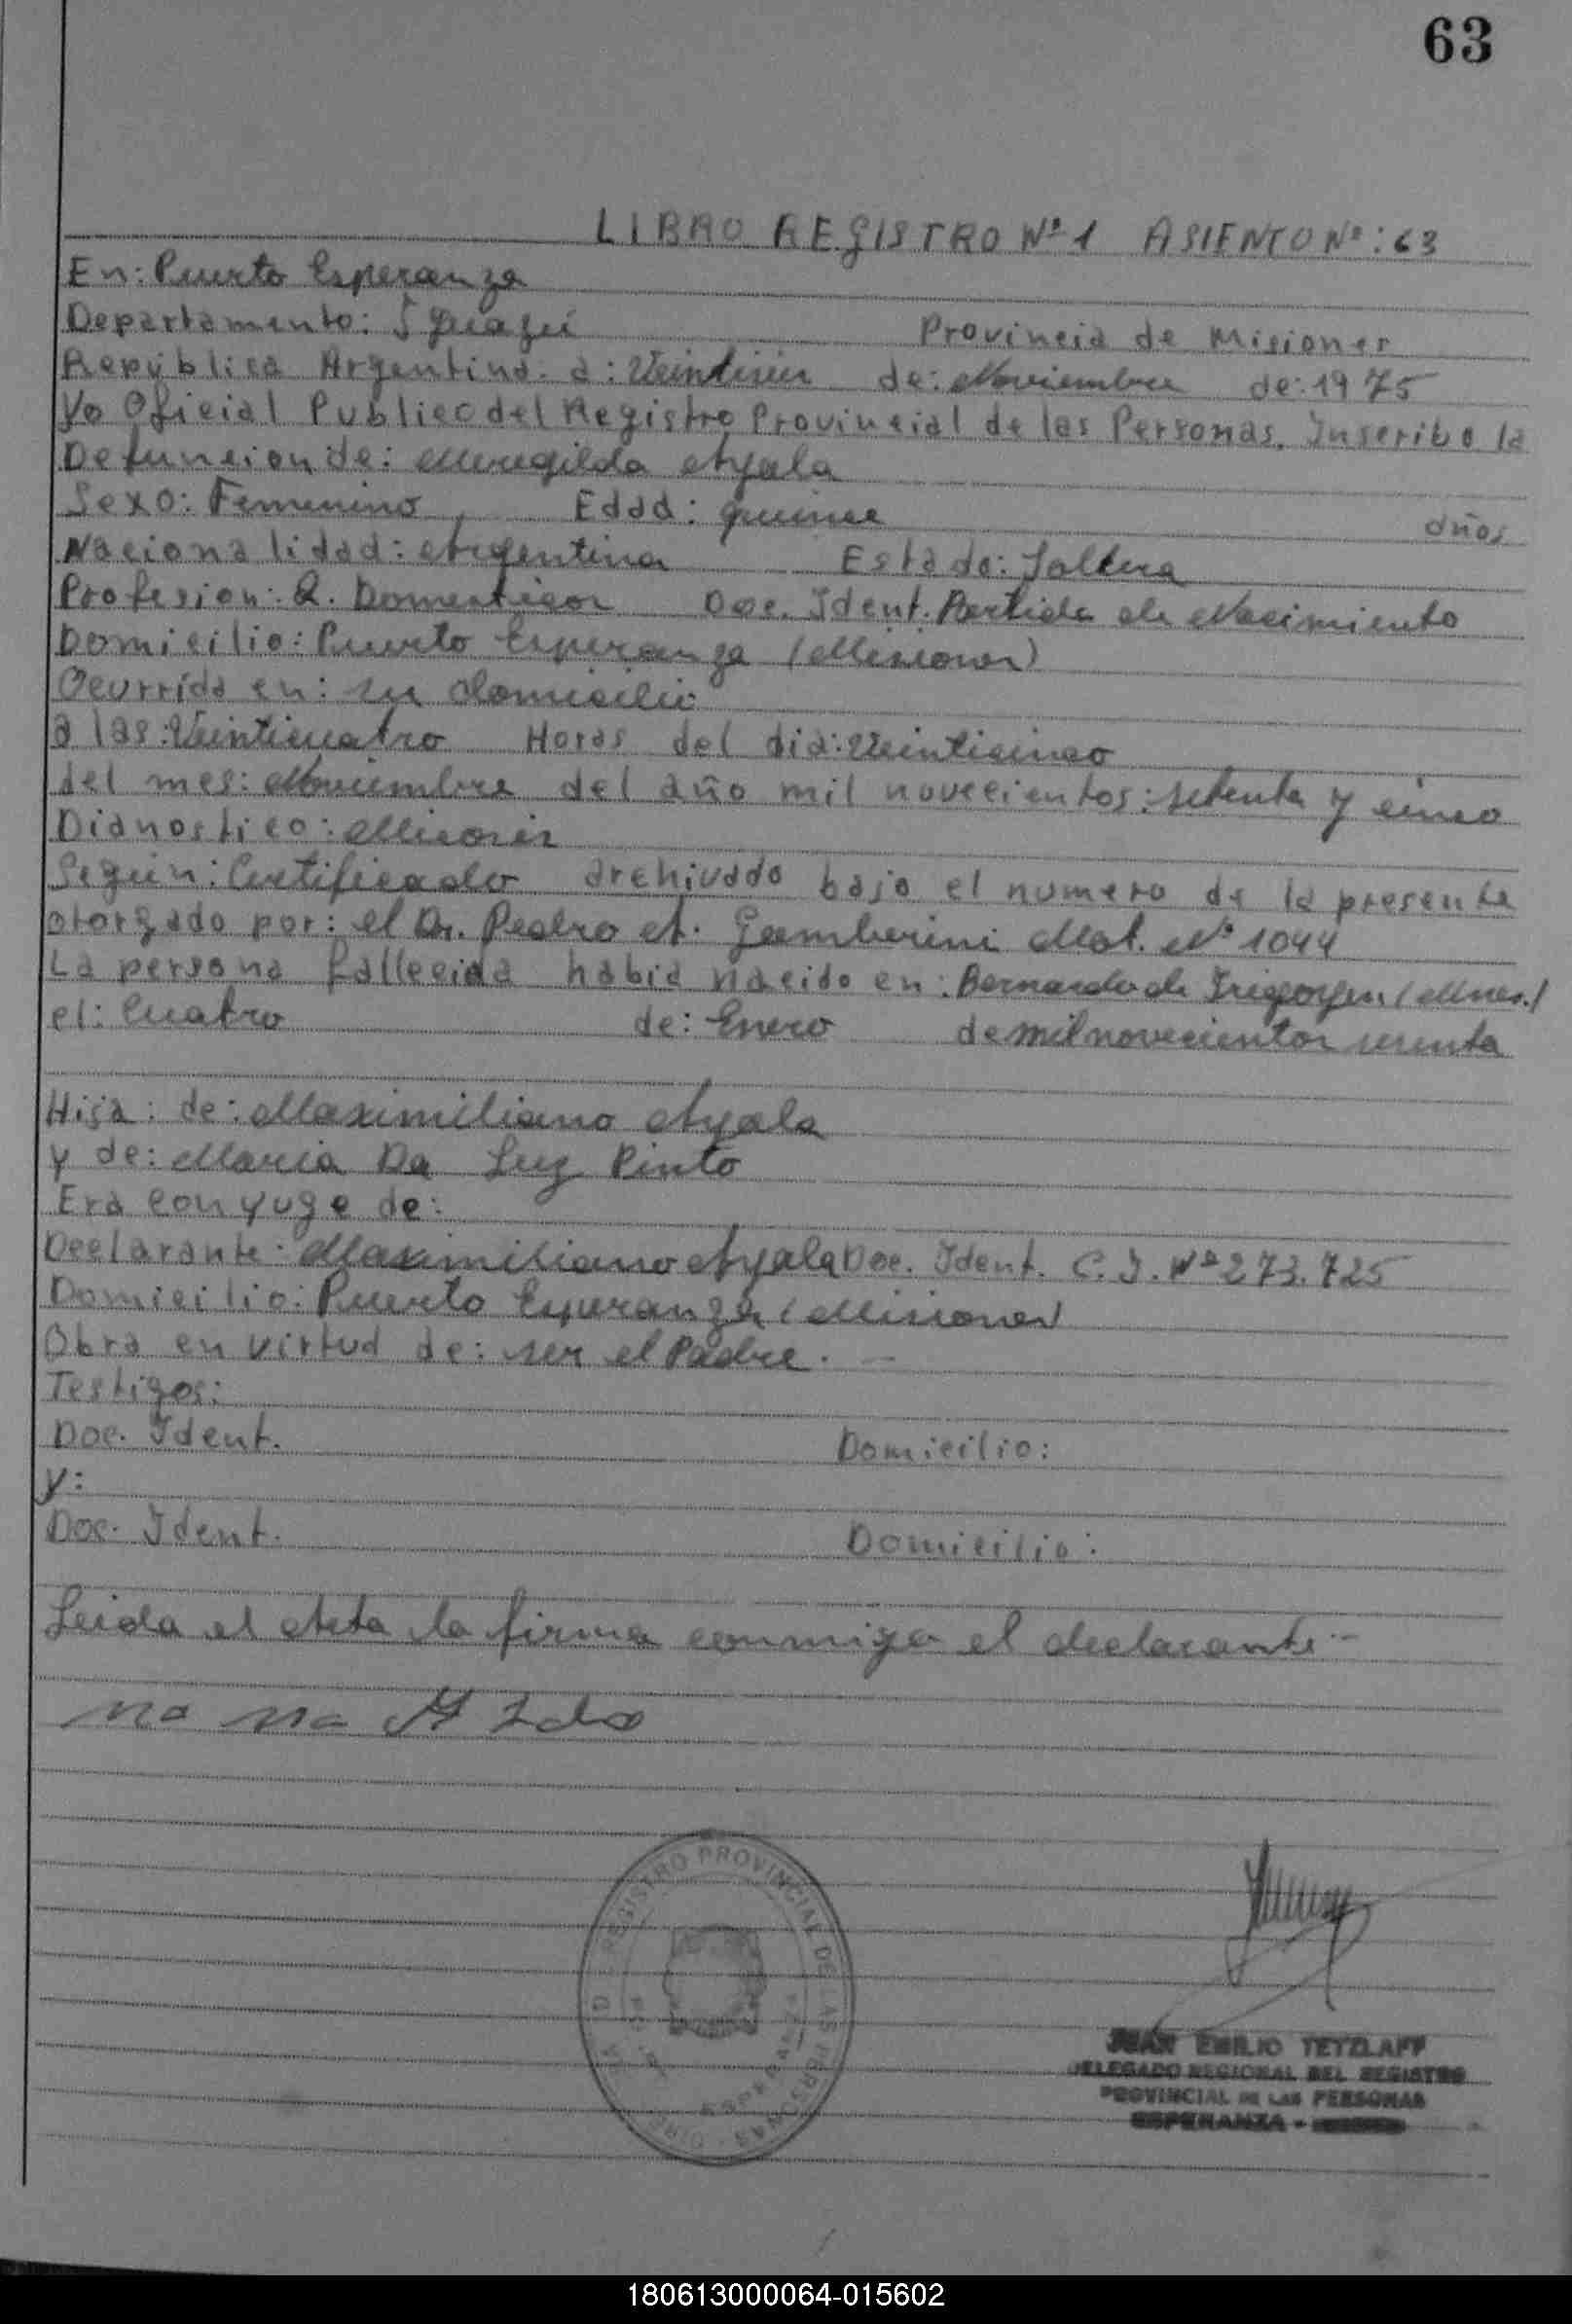 63
LIBRO REGISTRO Nº 1 ASIENTO Nº: 63
En: Puerto Esperanza
Departamento: Iguazú Provincia de Misiones
República Argentina. a: Veintiseis de: Noviembre de: 1975
Yo Oficial Publico del Registro Provincial de las Personas. Inscribo la
Defuncion de: Meregilda Ayala
Sexo: Femenino, Edad: quince años
Nacionalidad: Argentina Estado: Soltera
Profesion: Q. Domesticos Doc. Ident. Partida de Nacimiento
Domicilio: Puerto Esperanza (Misiones)
Ocurrida en: su domicilio
a las: Veinticuatro Horas del dia: Veinticinco
del mes: Noviembre del año mil novecientos: setenta y cinco
Dianostico:
Según: Certificado archivado bajo el numero de la presente
otorgado por: el Dr. Pedro A. Gamberini Mat. Nº 1044
La persona fallecida habia nacido en: Bernardo de Irigoyen (Mnes.)
el: Cuatro de: Enero de mil novecientos sesenta
Hija: de: Maximiliano Ayala
y de: Maria Da Luz Pinto
Era conyuge de:
Declarante: Maximiliano Ayala Doc. Ident. C. I. Nº 273.725
Domicilio: Puerto Esperanza (Misiones)
Obra en virtud de: ser el Padre. -
Testigos:
Doc. Ident. Domicilio:
y:
Doc. Ident. Domicilio:
Leida el Acta la firma conmigo el declarante.-
REGISTRO PROVINCIAL DE LAS PERSONAS
JUAN EMILIO TETZLAFF
DELEGADO REGIONAL DEL REGISTRO
PROVINCIAL DE LAS PERSONAS
ESPERANZA -
180613000064-015602